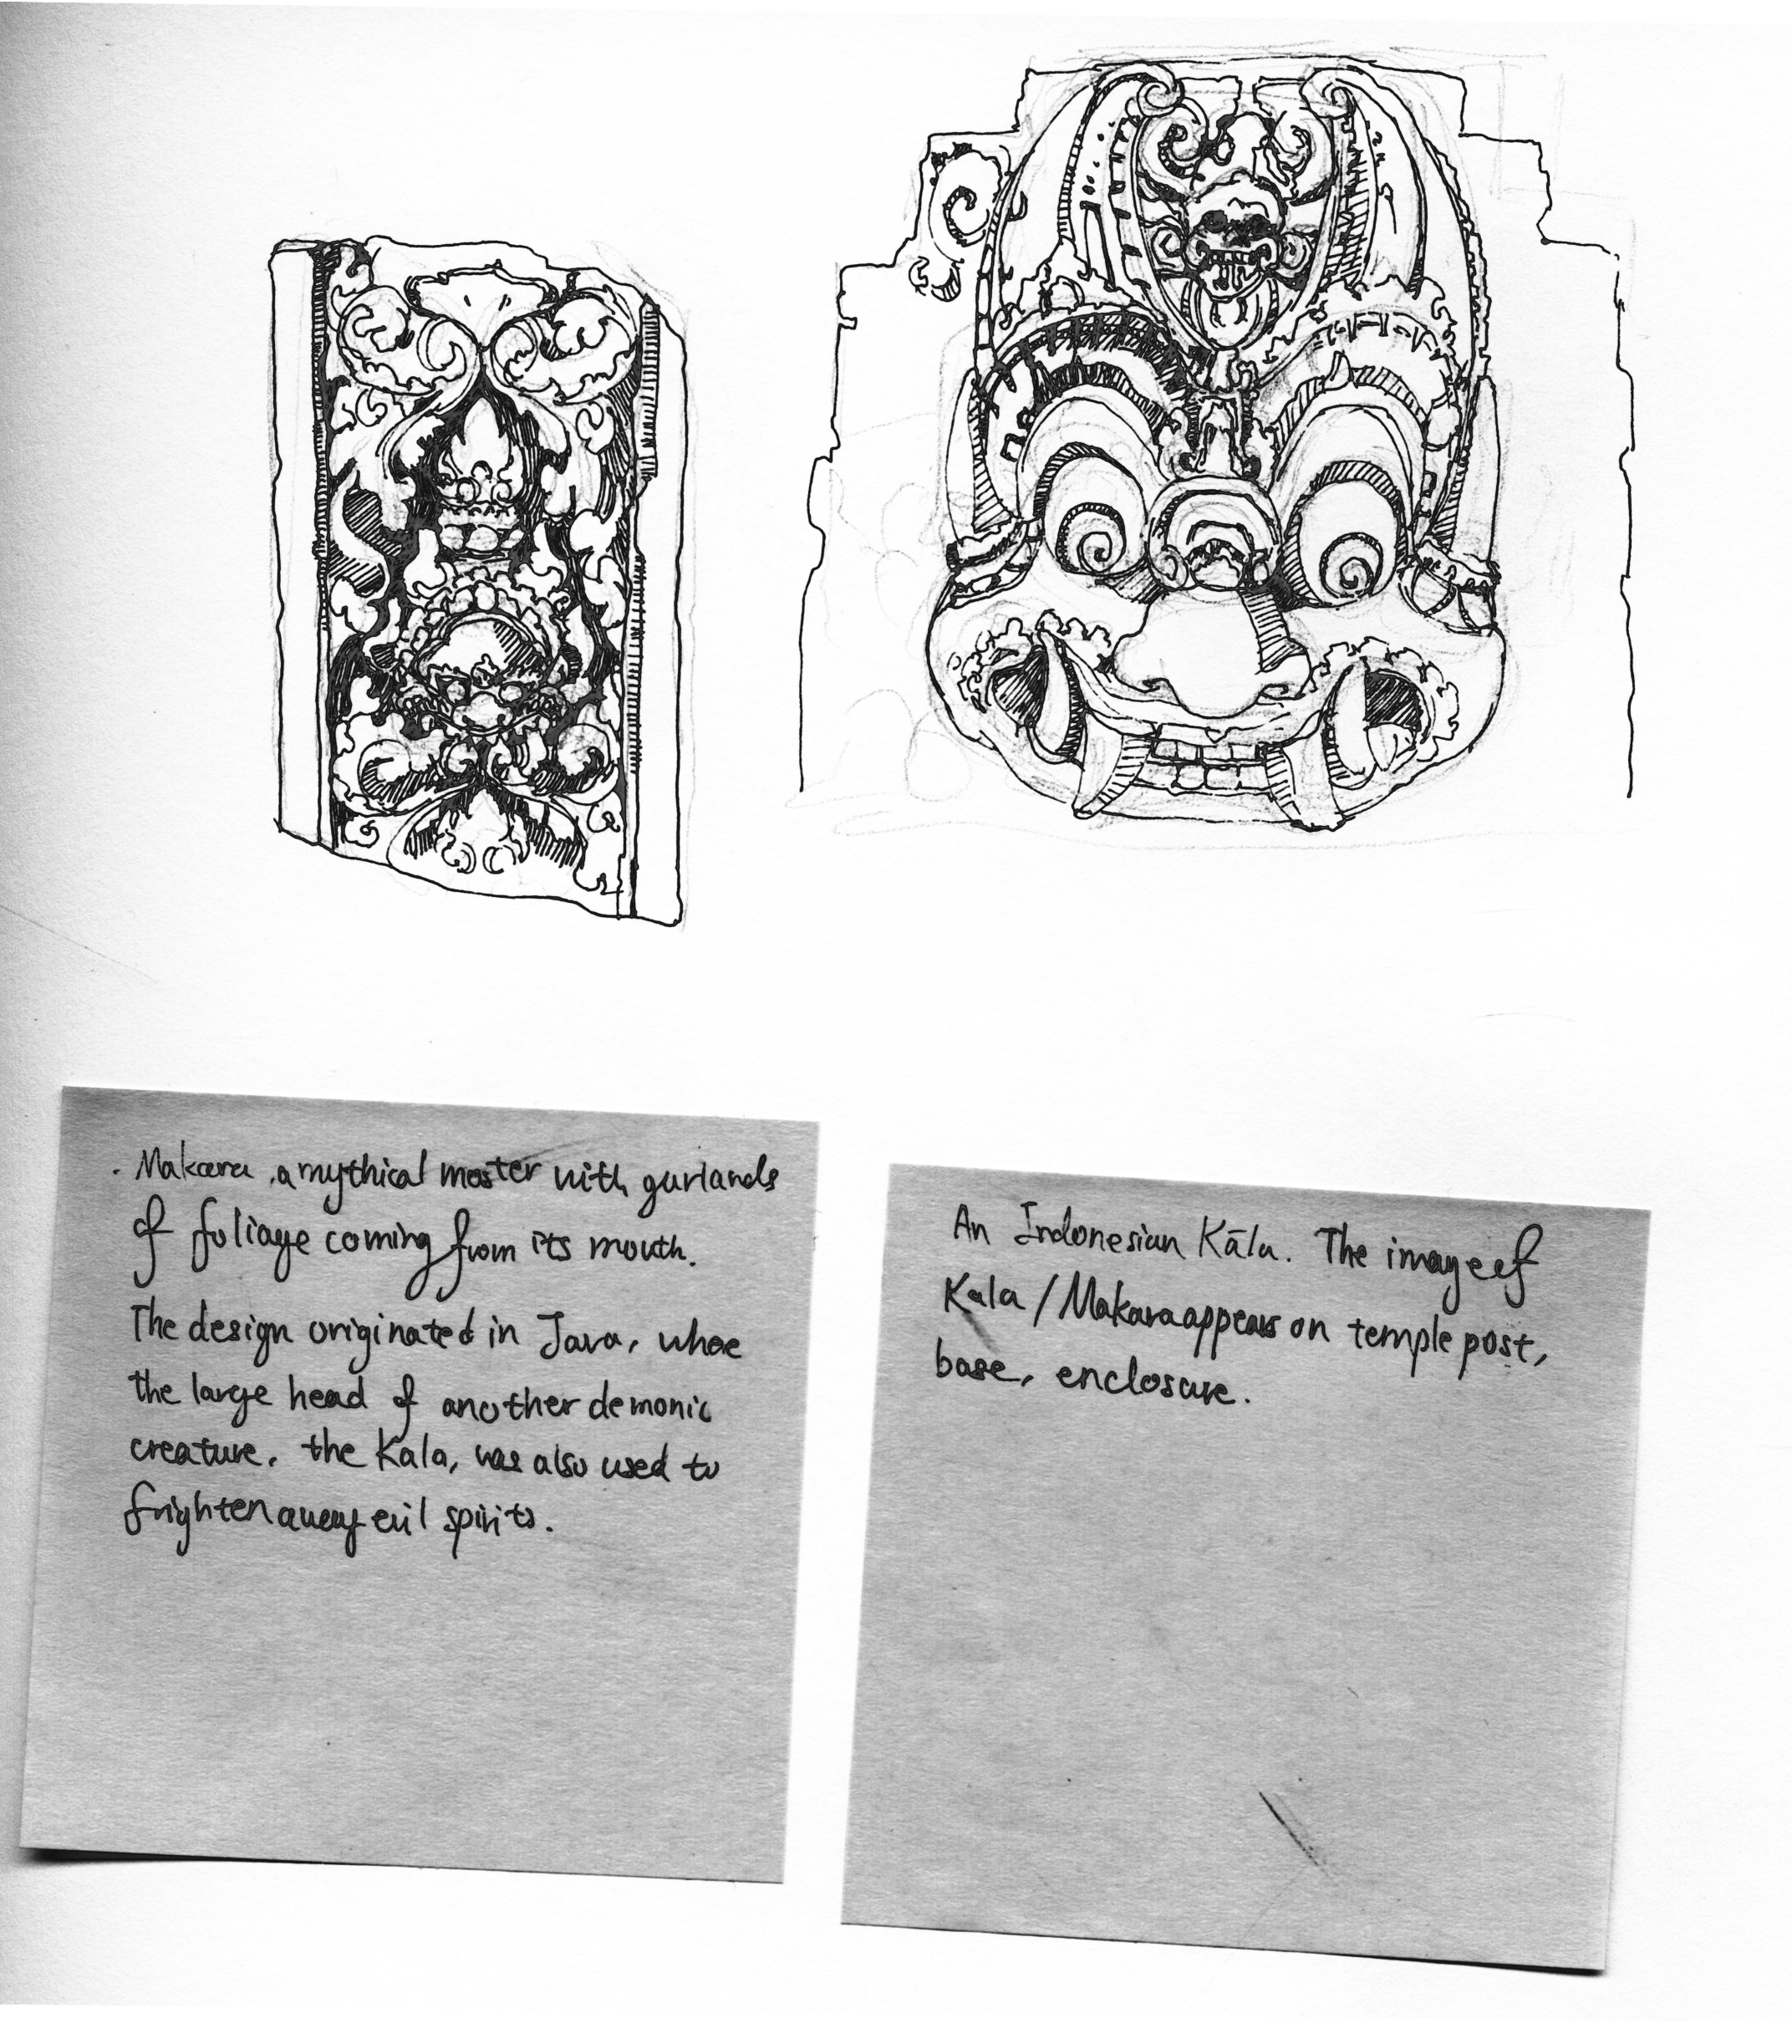 . Makara , a mythical moster with gurlands
of foliage coming from its mouth.
The design originated in Java, whee
the large head of another demonic
creature, the Kala, was also used to
frighten away evil spirits.
An Indonesian Kāla. The image of
Kala / Makara appears on temple post,
base, enclosure.